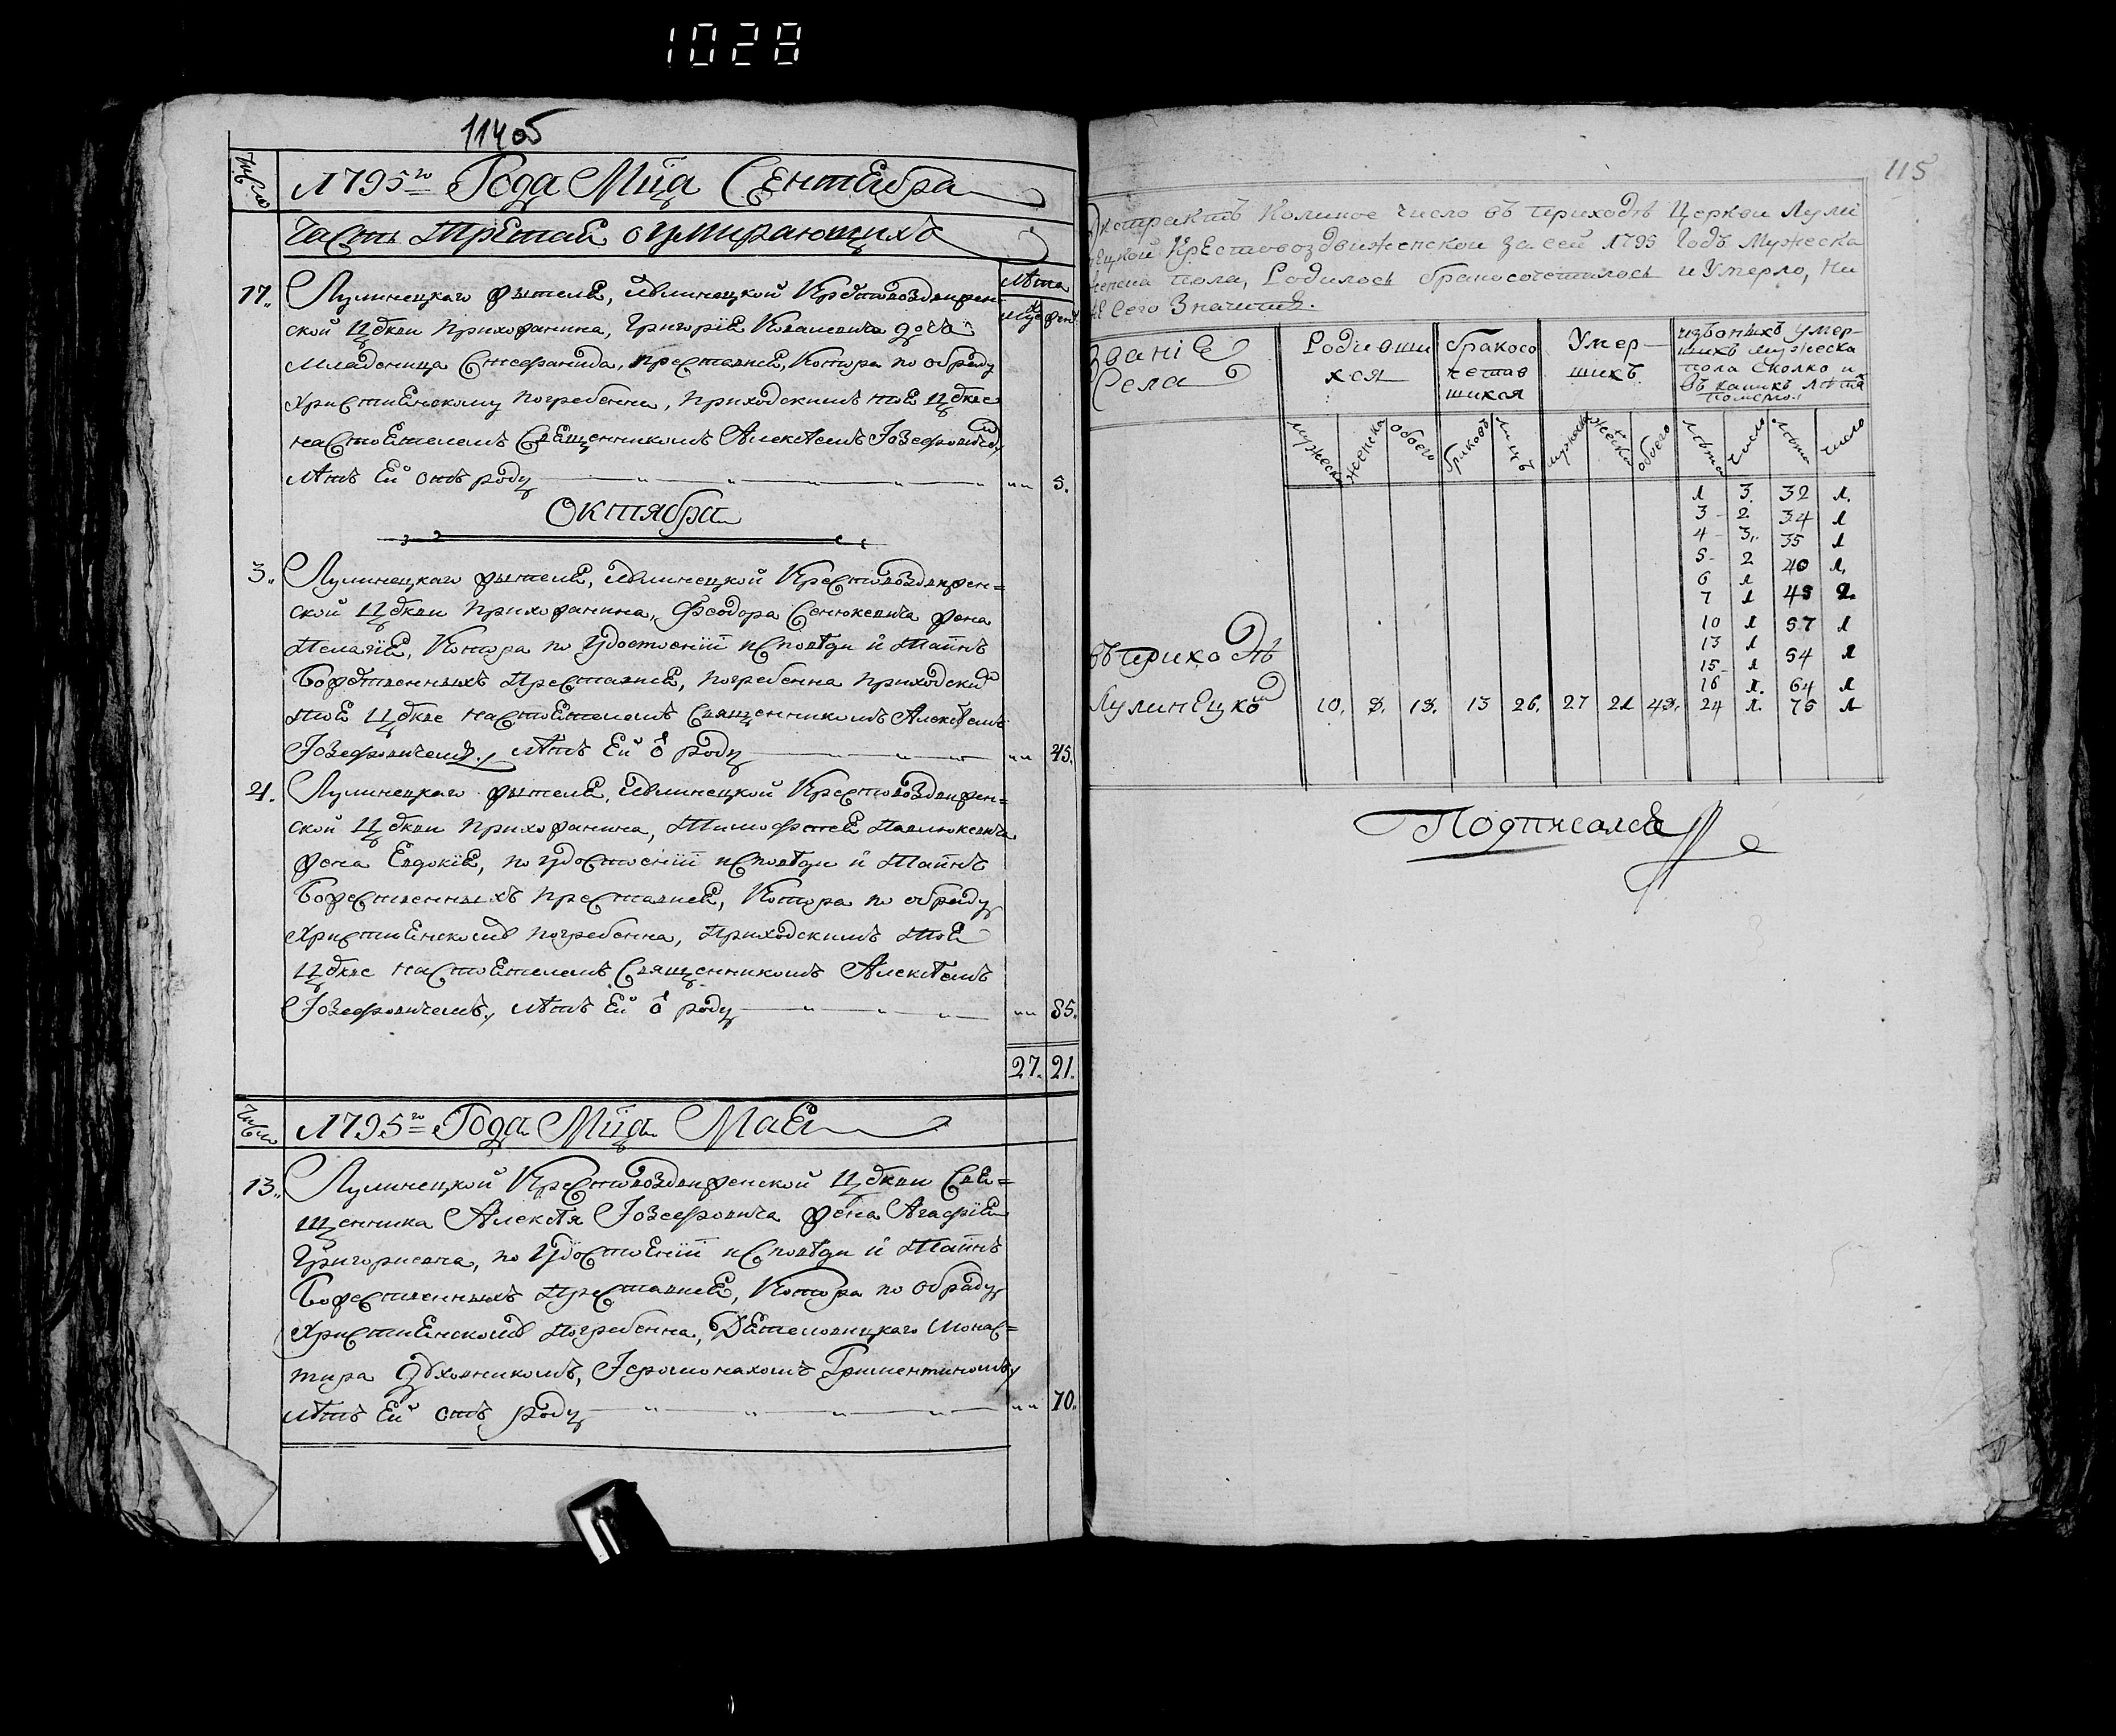 1028
114 об
Число
1795го Года Мца Сентебра
Часть Третая о умирающихъ
Лѣта
муж жен
17. Лулинецкаго жителя, Лулинецкой Крестовоздвижен-
ской Цркви прихожанина, Григорія Ковалевича дочь
младеница Стефанида, преставися, котора по обряду
христиенскому погребенна, приходскимъ тоя Цркве
настоятелемъ Священникомъ Алексѣемъ Іозефовичемъ
лѣтъ Ей отъ роду 5.
Октября
3. Лулинецкаго жителя, Лулинецкой Крестовоздвижен=
ской Цркви прихожанина, Феодора Сенюкевича жена
Пелагія, котора по удостоеніи исповѣди и Таинъ
Божественныхъ преставися, погребенна приходским
тоя Цркве настоятелемъ Священникомъ Алексѣемъ
Іозефовичемъ, лѣтъ Ей о роду 45.
21. Лулинецкаго жителя, Лулинецкой Крестовоздвижен=
ской Цркви прихожанина, Тимофтея Павлюкевича
жена Евдокія, по удостоеніи исповѣди и Таинъ
Божественныхъ преставися, котора по обряду
христиенскому погребенна, приходскимъ тоя
Цркве настоятелемъ Священникомъ Алексѣемъ
Іозефовичемъ, лѣтъ Ей о роду 85.
27. 21.
Число
1795го Года Мца Мая
13. Лулинецкой Крестовоздвиженской Цркви Свя=
щенника Алексѣя Іозефовича жена Агафія
Григориевна, по удостоеніи исповѣди и Таинъ
Божественныхъ преставися, котора по обряду
христиенскому погребенна, Дятеловицкаго Монас=
тира духовникомъ, Іеромонахомъ
лѣтъ Ей отъ роду 70.
115
Экстрактъ Коликое число въ приходѣ Церкви Лули
нецкой Крестовоздвиженской за сей 1795 Годъ Мужеска
женска пола, Родилось бракосочетилось и Умерло, Ни
же сего Значится.
Званіе Села
Родивши хся
бракосо четав шихся
Умер- шихъ
изъ оныхъ умер-
шихъ мужеска
пола сколко и
въ какихъ лѣта
померло
мужеска женска обоего браковъ лицъ мужеска женска обоего лѣта число лѣта число
1 3. 32 1.
3 - 2. 34 1
4 - 3. 35 1
5 - 2 40 1.
6 1 45 2.
7 1
10 1 57 1
13 1 54 1
15 - 1
16 1. 64 1
въ приходѣ
Лулинецкой 10. 8. 18. 13 26. 27 21 48. 24 1. 75 1
Подписался